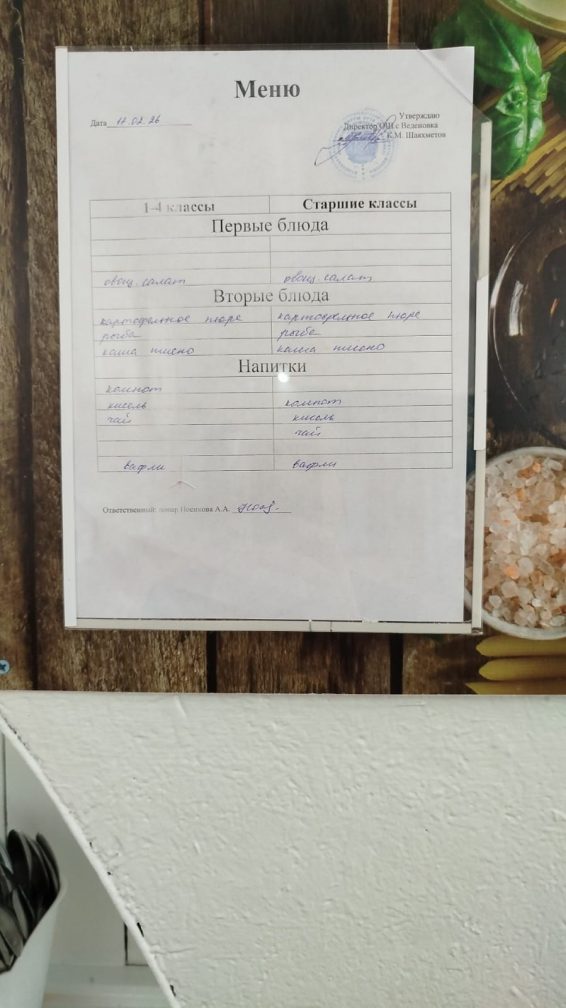 Меню
Дата 17.02.26
Утверждаю
Директор ОШ с Веденовка
К.М. Шаяхметов
1-4 классы Старшие классы
Первые блюда
овощ. салат овощ. салат
Вторые блюда
картофельное пюре картофельное пюре
рыба рыба
каша пшено каша пшено
Напитки
компот
кисель компот
чай кисель
чай
вафли вафли
Ответственный: повар Носикова А.А.